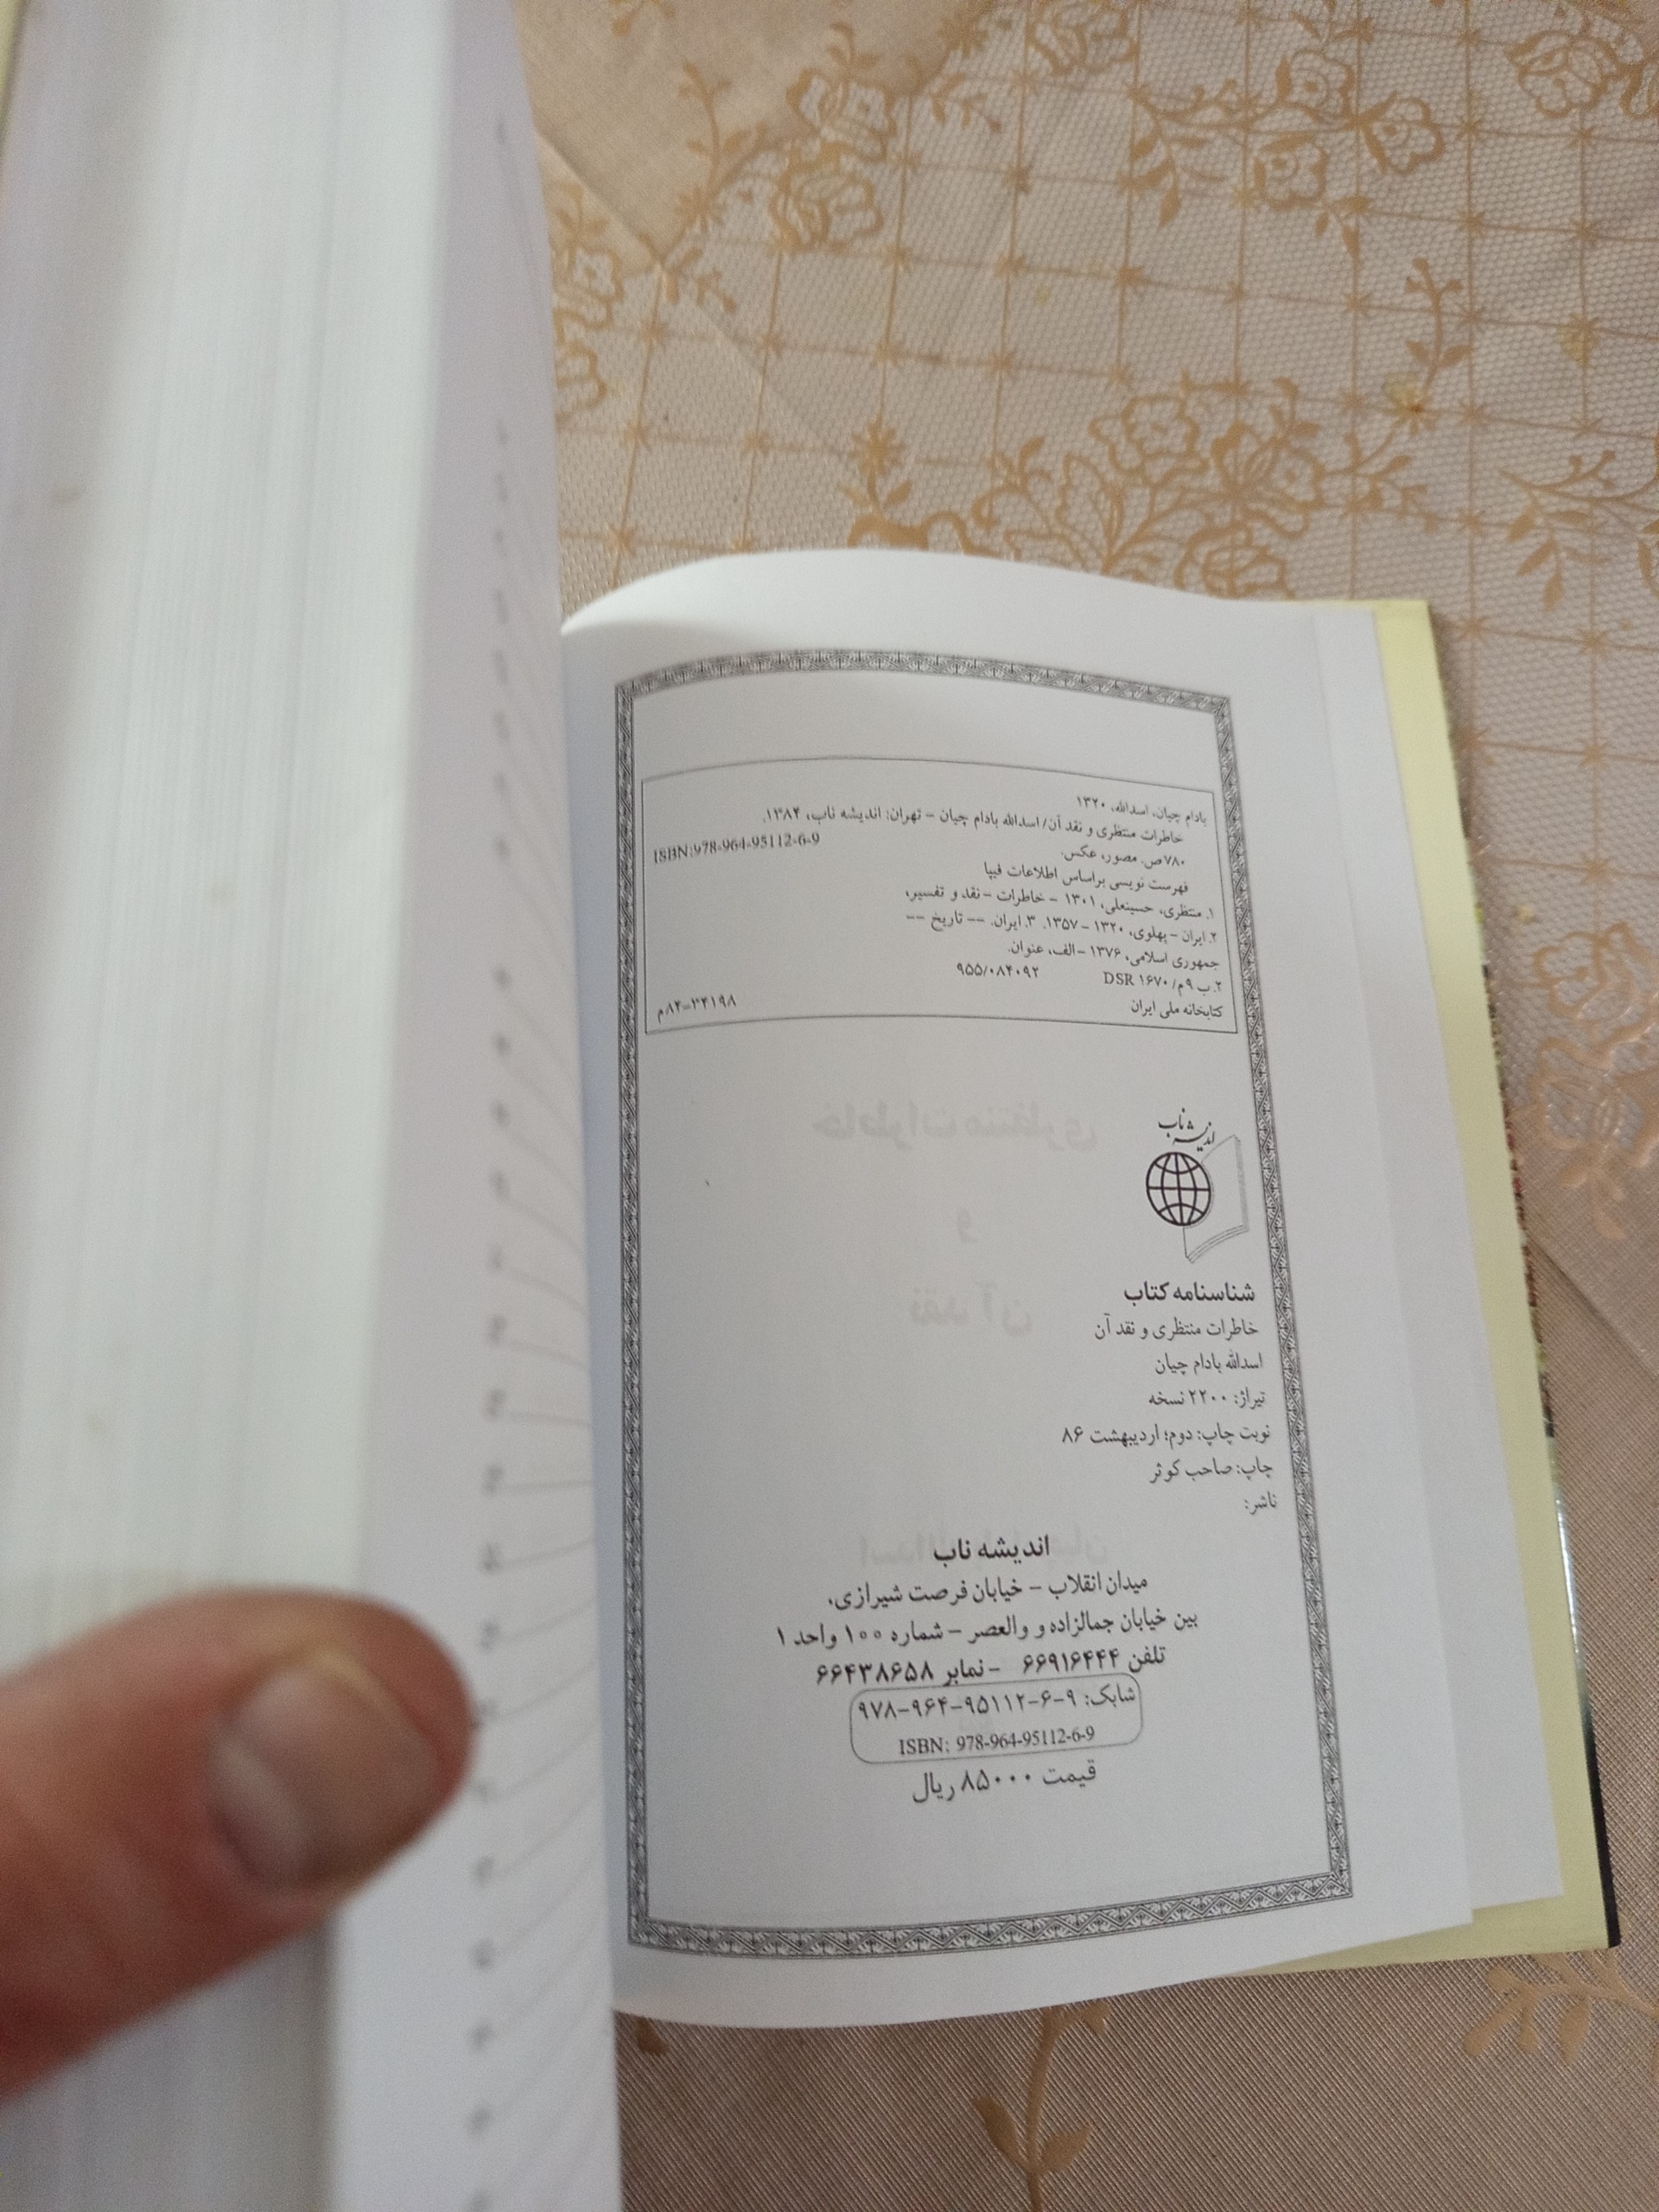 بادام چیان، اسدالله، ۱۳۲۰
خاطرات منتظری و نقد آن/ اسدالله بادام چیان – تهران: اندیشه ناب، ۱۳۸۴.
۷۸۰ ص. مصور، عکس. ISBN:978-964-95112-6-9
فهرست نویسی براساس اطلاعات فیپا
۱. منتظری، حسینعلی، ۱۳۰۱ – خاطرات – نقد و تفسیر،
۲. ایران – پهلوی، ۱۳۲۰ – ۱۳۵۷. ۳. ایران. -- تاریخ --
جمهوری اسلامی، ۱۳۷۶ – الف، عنوان.
۲. ب ۹ م/ ۱۶۷۰ DSR ۹۵۵/۰۸۴۰۹۲
کتابخانه ملی ایران ۳۴۱۹۸=۸۴م
اندیشه ناب
شناسنامه کتاب
خاطرات منتظری و نقد آن
اسدالله بادام چیان
تیراژ: ۲۲۰۰ نسخه
نوبت چاپ: دوم؛ اردیبهشت ۸۶
چاپ: صاحب کوثر
ناشر:
اندیشه ناب
میدان انقلاب – خیابان فرصت شیرازی،
بین خیابان جمالزاده و والعصر – شماره ۱۰۰ واحد ۱
تلفن ۶۶۹۱۶۴۴۴ – نمابر ۶۶۴۳۸۶۵۸
شابک: ۹-۶-۹۵۱۱۲-۹۶۴-۹۷۸
ISBN: 978-964-95112-6-9
قیمت ۸۵۰۰۰ ریال